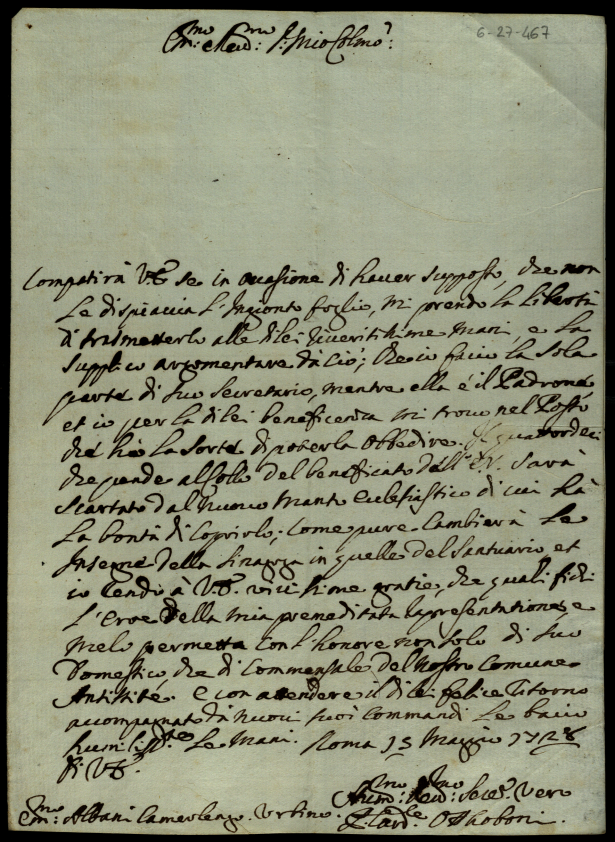 6-27-467
Em:mo e Reu:mo S:r mio Colmo:
Compatirà V.E. se in occasione di hauer supposto, che non
Le dispiaccia l'Ingionto foglio, mi prendo la libertà
di trasmetterlo alle di lei riueritissime Mani, e La
supplico argomentare da ciò; che io faccio la sola
parte di suo Secretario, mentre ella è il Padrone
et io per la di lei beneficenza mi trouo nel Posto
che hò la sorte di poterla obbedire. Il
che pende al collo del beneficato dall'E.V. sarà
scartato dal nuouo Manto ecclesiastico di cui hà
La bontà di coprirlo; come pure cambierà Le
Insegne della in quelle del Santuario, et
io rendo à V.E. viuissime gratie, che
l' della mia premeditata rapresentatione, e
melo permetta con l'honore non solo di suo
Domestico, che di Commensale del Nostro Comune
Antiste. e con attendere il di lei felice ritorno
accompagnato dà nuoui suoi Commandi Le bacio
humiliss:te Le Mani. Roma 15 Maggio 1728
Di V.E.
Hum:mo Seru:r vero
Em:mo Albani Camerlengo. Urbino.
P. Card:le Otthoboni.